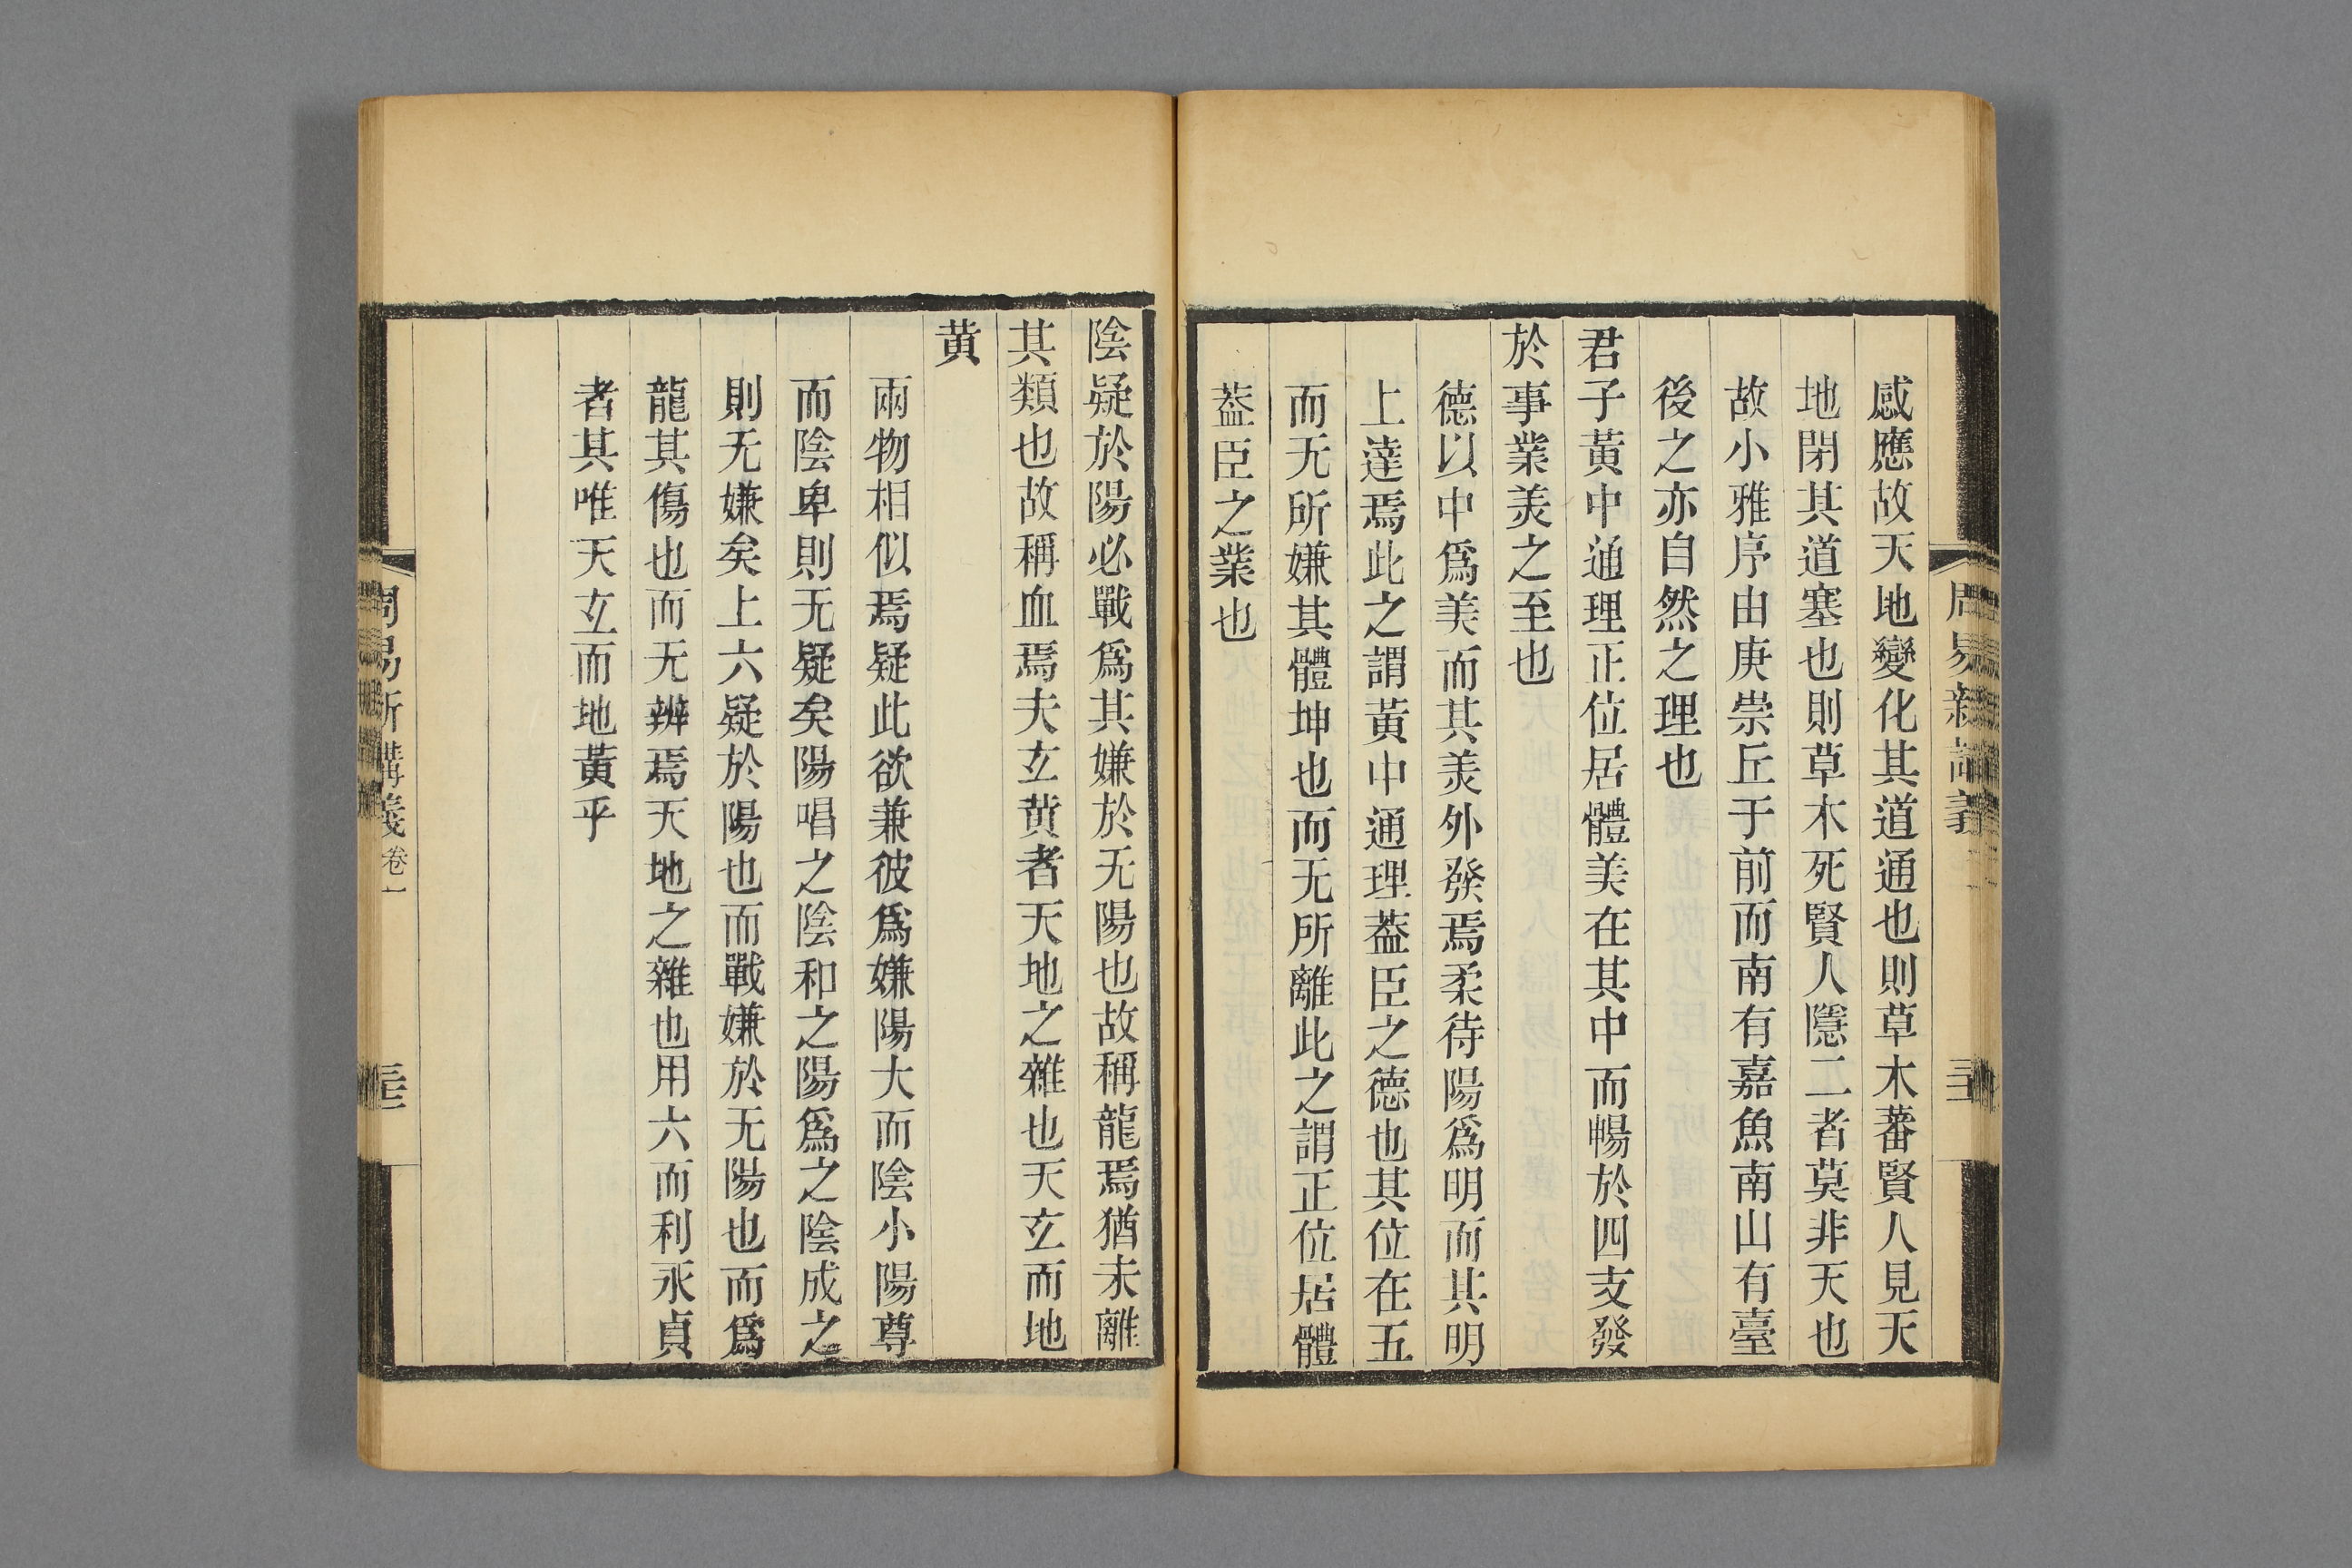 感應故天地變化其道通也則草木蕃賢人見天
地閉其道塞也則草木死賢人隱二者莫非天也
故小雅序由庚崇丘于前而南有嘉魚南山有臺
後之亦自然之理也
君子黃中通理正位居體美在其中而暢於四支發
於事業美之至也
德以中爲美而其美外發焉柔待陽爲明而其明
上達焉此之謂黃中通理葢臣之德也其位在五
而无所嫌其體坤也而无所離此之謂正位居體
葢臣之業也
陰疑於陽必戰爲其嫌於无陽也故稱龍焉猶未離
其類也故稱血焉夫玄黃者天地之雜也天玄而地
黃
兩物相似焉疑此欲兼彼爲嫌陽大而陰小陽尊
而陰卑則无疑矣陽唱之陰和之陽爲之陰成之
則无嫌矣上六疑於陽也而戰嫌於无陽也而爲
龍其傷也而无辨焉天地之雜也用六而利永貞
者其唯天玄而地黃乎
周易新講義 卷一